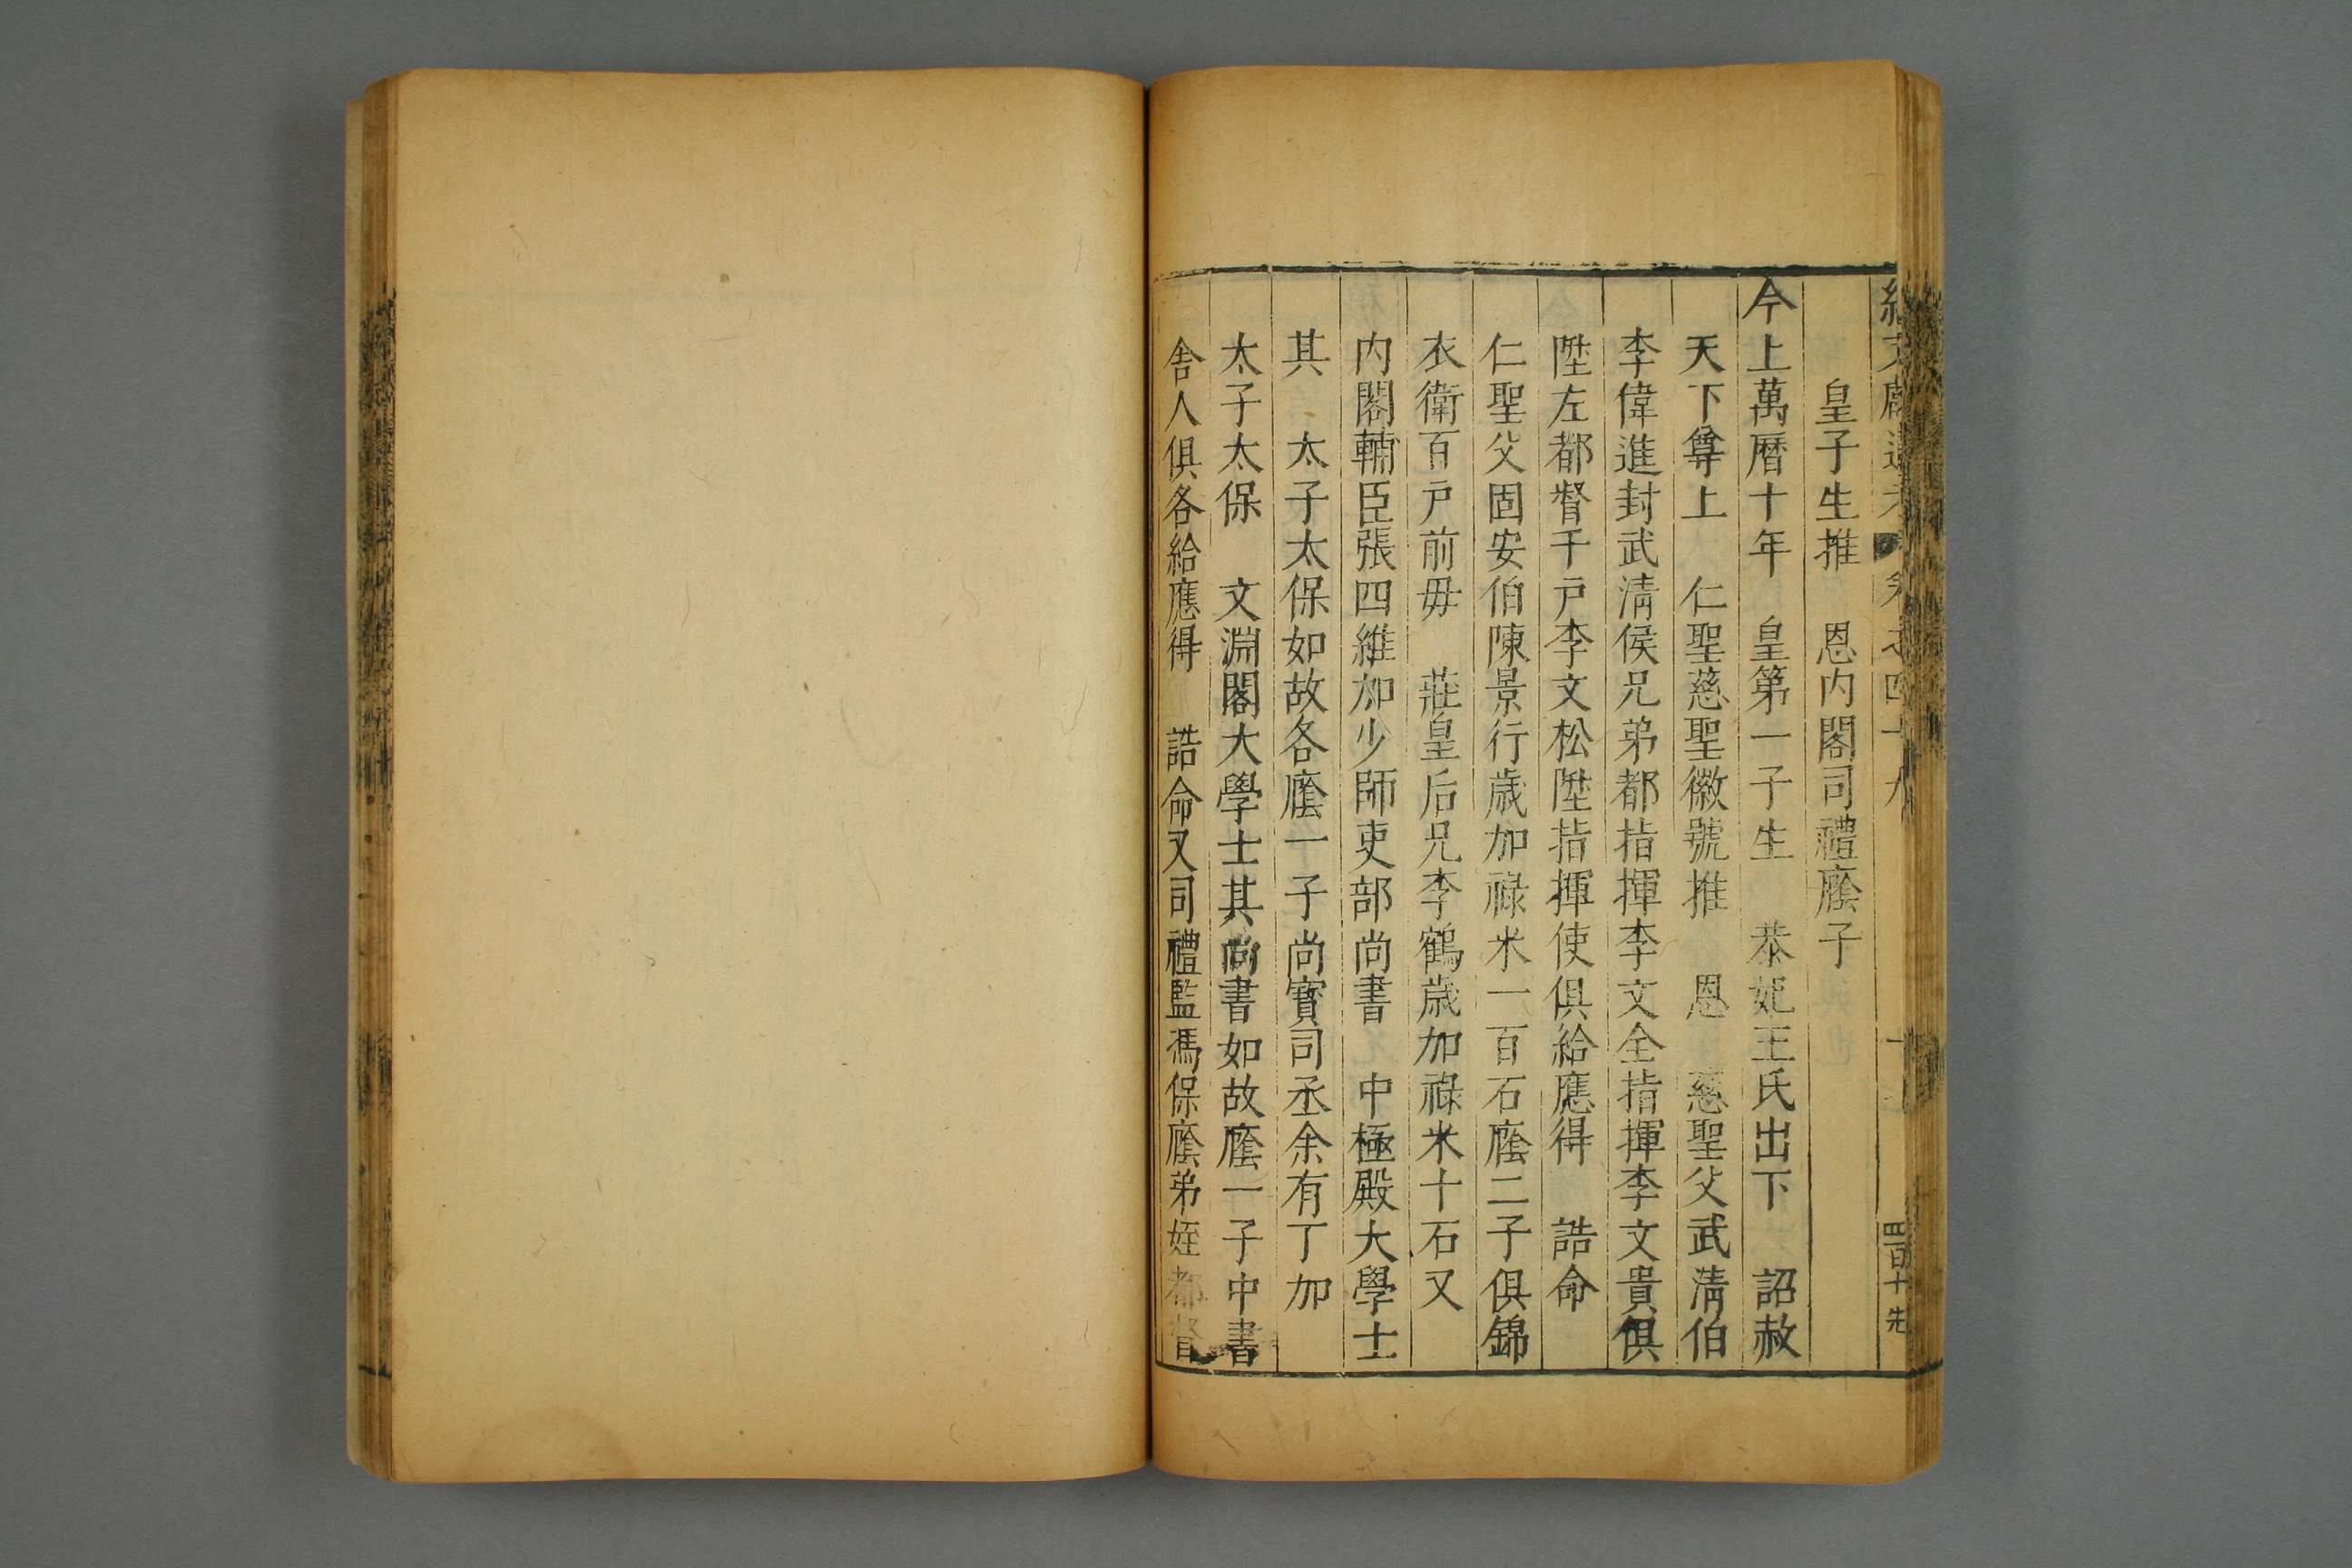 皇子生推 恩内閣司禮廕子
今上萬曆十年 皇第一子生 恭妃王氏出下 詔赦
天下尊上 仁聖慈聖徽號推 恩 慈聖父武清伯
李偉進封武清侯兄弟都指揮李文全指揮李文貴俱
陞左都督千戶李文松陞指揮使俱給應得 誥命
仁聖父固安伯陳景行歲加祿米一百石廕二子俱錦
衣衛百戶前毋 莊皇后兄李鶴歲加祿米十石又
内閣輔臣張四維加少師吏部尚書 中極殿大學士
其 太子太保如故各廕一子尚寳司丞余有丁加
太子太保 文淵閣大學士其尚書如故廕一子中書
舍人俱各給應得 誥命又司禮監馮保廕弟姪都督
四百十